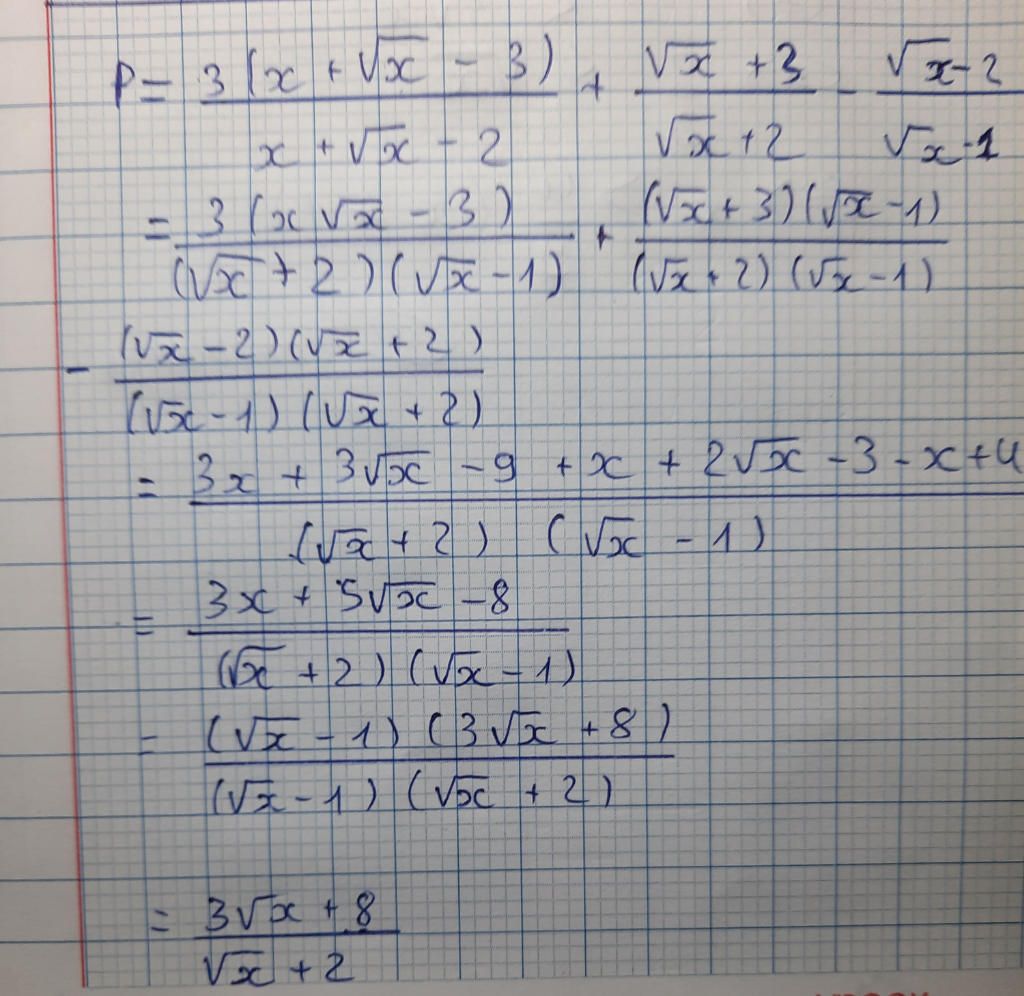 P = 3(x + √x - 3) / x + √x - 2 + √x + 3 / √x + 2 - √x - 2 / √x - 1
= 3(x √x - 3) / (√x + 2)(√x - 1) + (√x + 3)(√x - 1) / (√x + 2)(√x - 1)
- (√x - 2)(√x + 2) / (√x - 1)(√x + 2)
= 3x + 3√x - 9 + x + 2√x - 3 - x + 4 / (√x + 2)(√x - 1)
= 3x + 5√x - 8 / (√x + 2)(√x - 1)
= (√x - 1)(3√x + 8) / (√x - 1)(√x + 2)
= 3√x + 8 / √x + 2